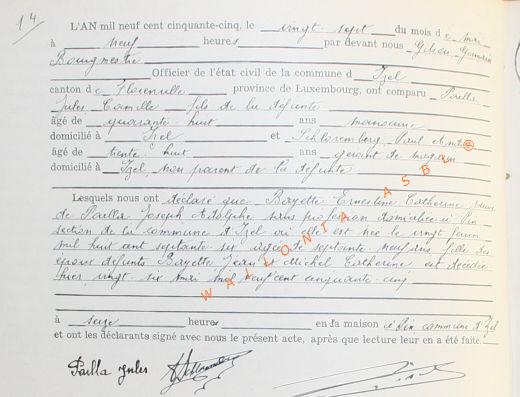 14
L'AN mil neuf cent cinquante-cinq, le vingt-sept du mois de mai
à neuf heures par devant nous Gilson Germain
Bourgmestre
Officier de l'état civil de la commune d Izel
canton de Florenville province de Luxembourg, ont comparu Pailla
Jules Camille fils de la défunte
âgé de quarante huit ans manoeuvre
domicilié à Izel et Schloremberg Paul André
âgé de trente huit ans gérant de magasin
domicilié à Izel, non parent de la défunte
Lesquels nous ont déclaré que Bazette Ernestine Catherine veuve
de Pailla Joseph Adolphe sans profession domiciliée à Pin
section de la commune d'Izel où elle est née le vingt
mil huit cent septante six agée de septante neuf ans fille des
époux défunts Bazette Jean et Michel Catherine est décédée
hier vingt six mai mil neuf cent cinquante cinq
à seize heures en la maison à Pin commune d'Izel
et ont les déclarants signé avec nous le présent acte, après que lecture leur en a été faite.
Pailla Jules
WALLONIA ASBL ®